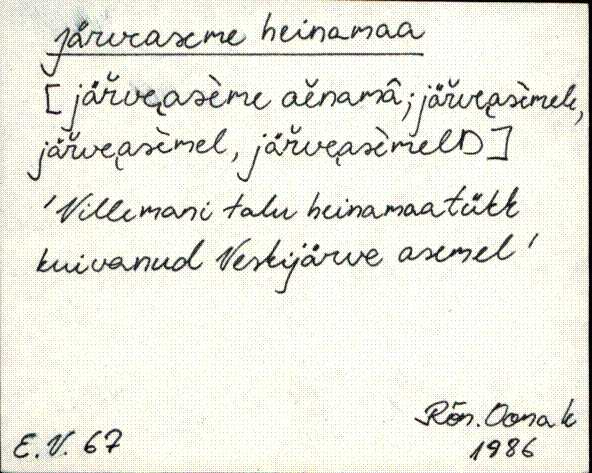 järveaseme heinamaa
[järv̆e̯asème aĕnamâ; järv̆e̯asèmele,
järv̆e̯asèmel, järv̆e̯asèmelD]
'Villemani talu heinamaatükk
kuivanud Veskijärve asemel'
Rõn. Oomak
E.V. 67 1986